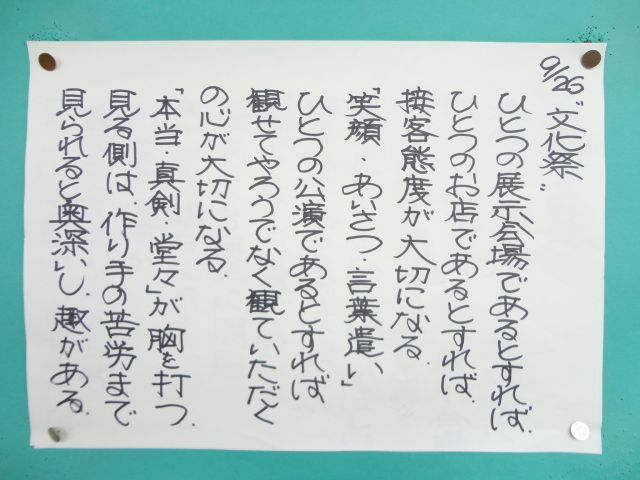 9/26 "文化祭"
ひとつの展示会場であるとすれば.
ひとつのお店であるとすれば.
接客態度が大切になる.
「笑顔・あいさつ・言葉遣い」
ひとつの公演であるとすれば
観せてやろうでなく観ていただく
の心が大切になる.
「本当・真剣・堂々」が胸を打つ.
見る側は、作り手の苦労まで
見られると奥深いし、趣がある.